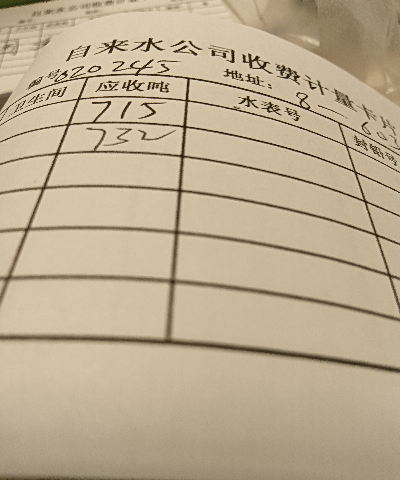 自来水公司收费计量卡片
编号820245 地址：8—601
卫生间 应收吨 水表号 封铅号
715
732